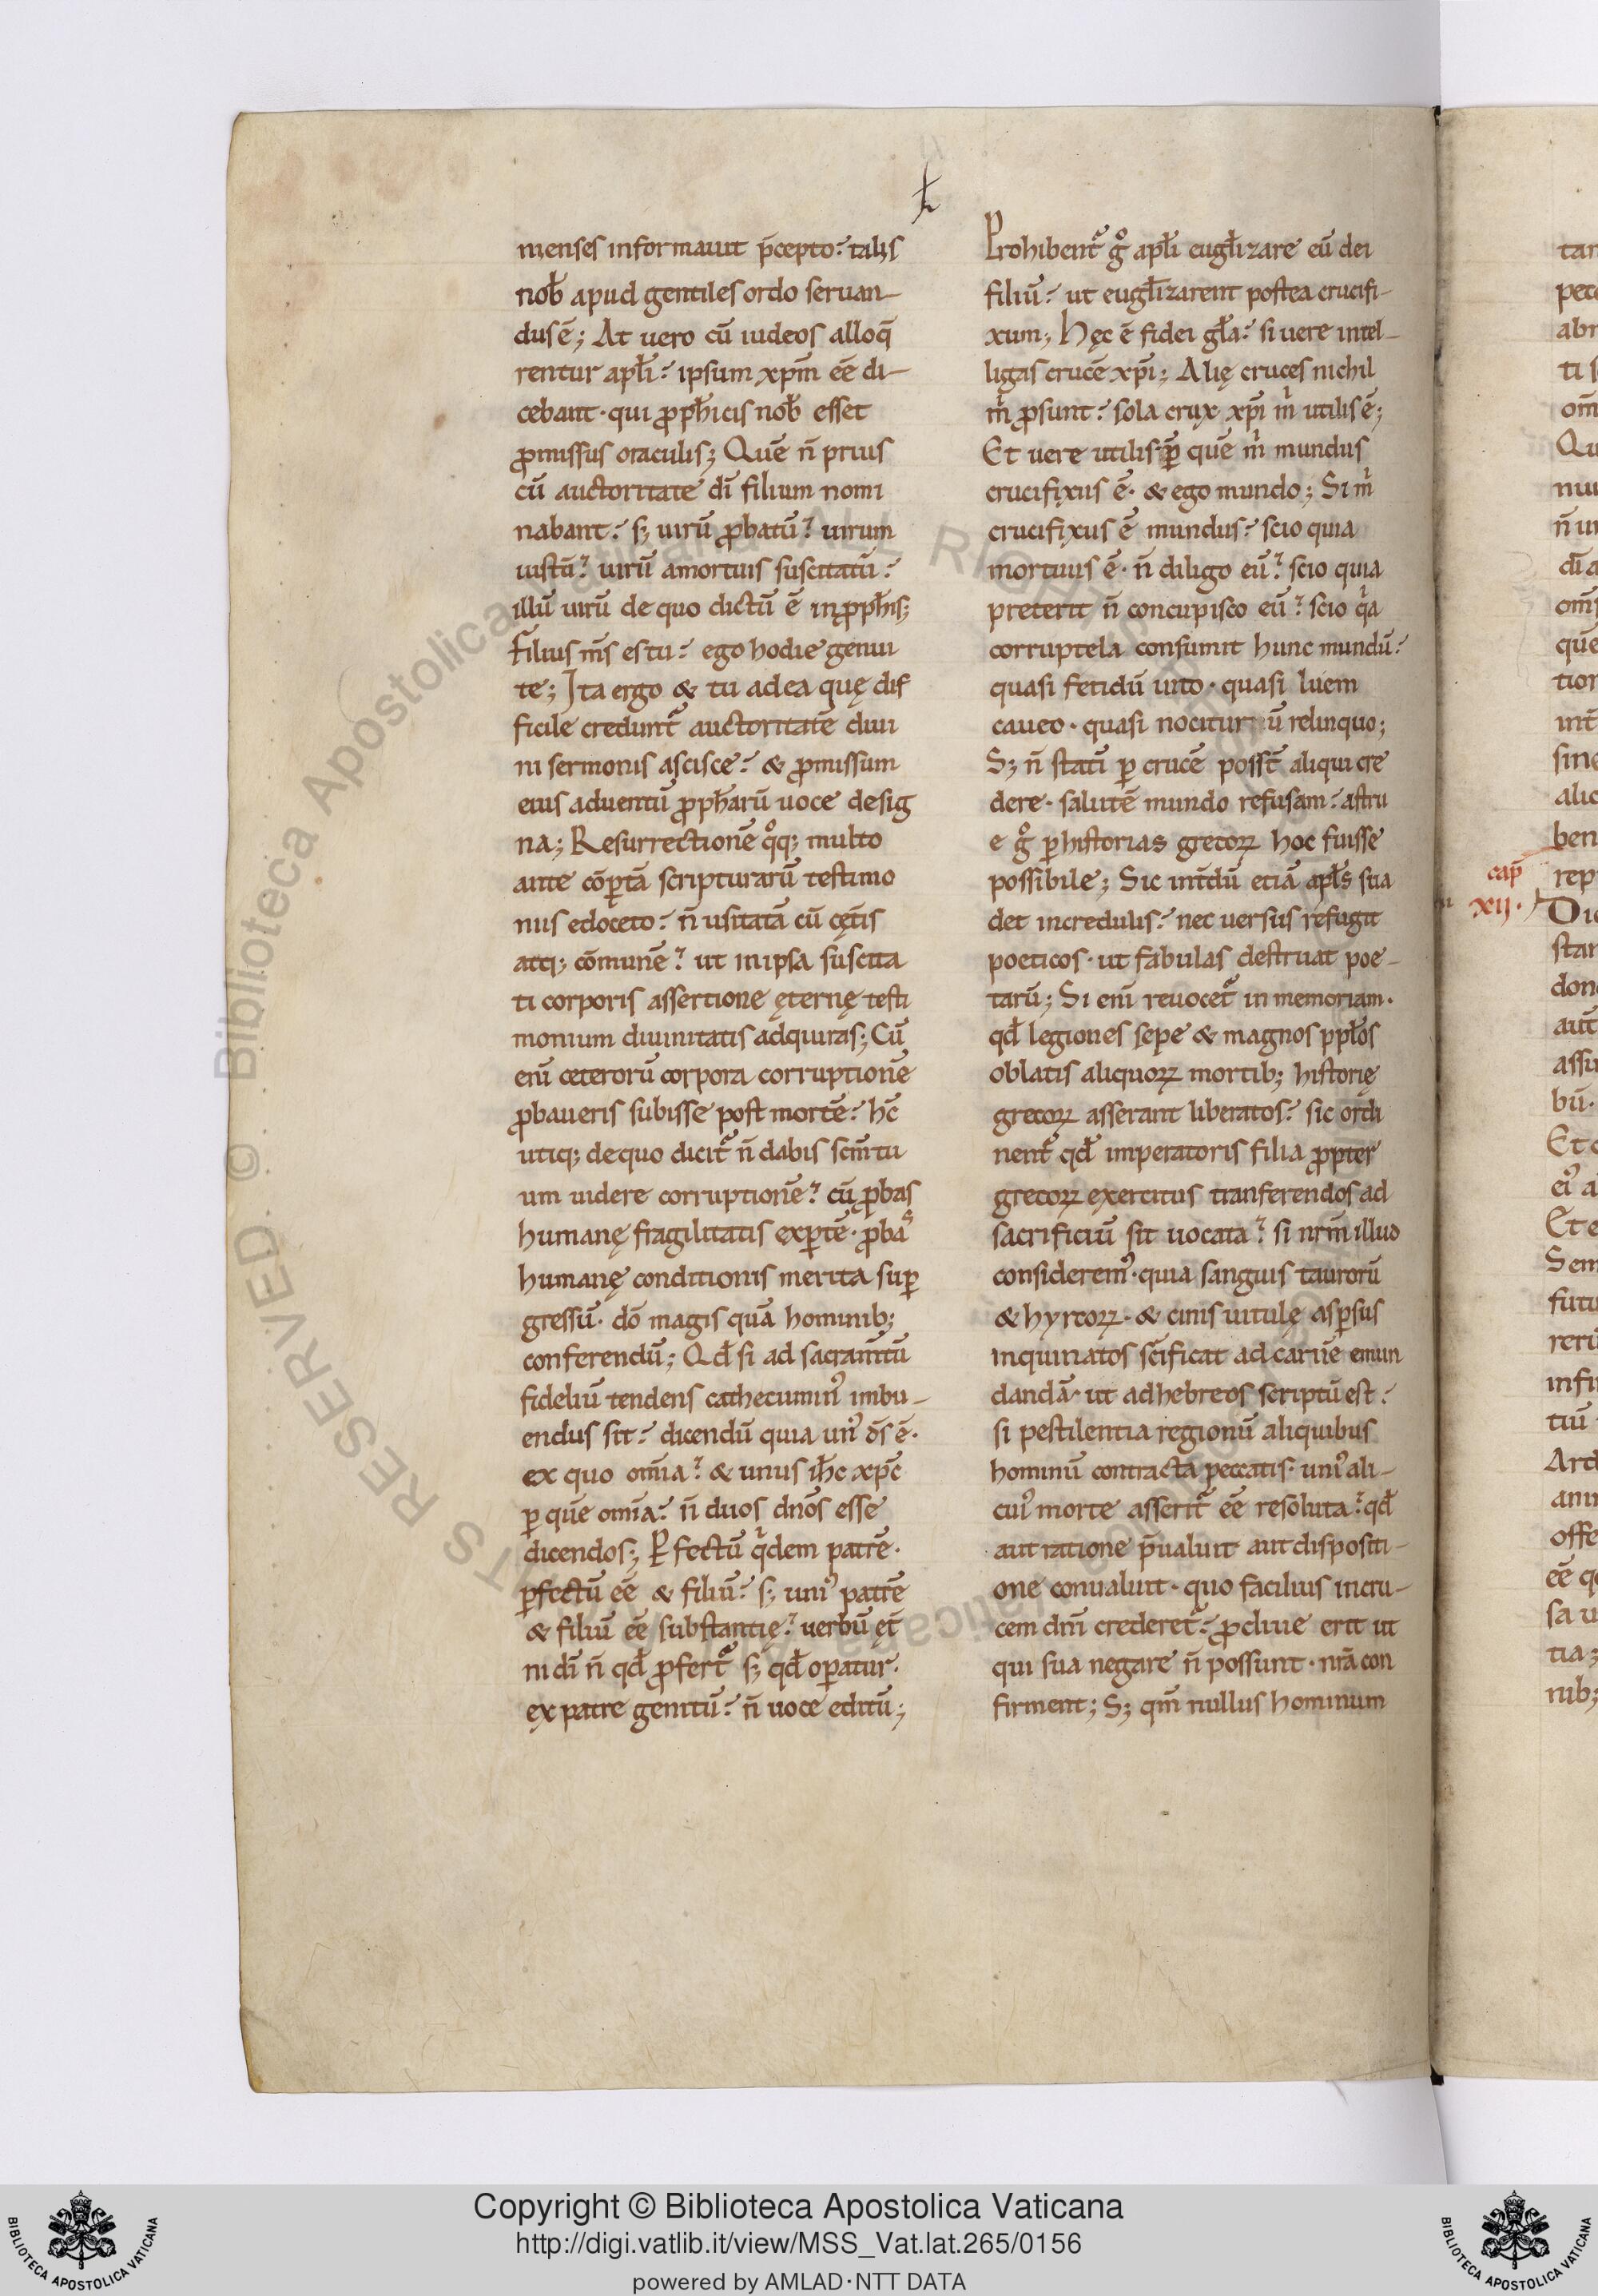 menses informauit p̄cepto? talis
nob̄ apud gentiles ordo seruan-
dus ē; At uero cū iudeos alloq̄
rentur apłi? ipsum xp̄m eē di-
cebant. qui ꝓph̄icis nob̄ esset
ꝓmissus oraculis; Quē n̄ prius
cū auctoritate dī filium nomi
nabant? sꝫ uirū ꝓbatū? uirum
iustū? uirū amortuis suscitatū?
illū uirū de quo dictū ē inꝓph̄is;
Filius m̄s es tu? ego hodie genui
te; Ita ergo & tu ad ea quę dif
ficile credunt᷑ auctoritatē diui
ni sermonis ascisce? & ꝓmissum
eius aduentū ꝓph̄arū uoce desig
na; Resurrectionē qͦqꝫ multo
ante cōꝑtā scripturarū testimo
niis edoceto? n̄ usitatā cū cęt̄is
atqꝫ cōmunē? ut in ipsa suscita
ti corporis assertione ęternę testi
monium diuinitatis adquiras; Cū
eni̅ ceterorū corpora corruptionē
ꝓbaueris subisse post mortē? hc̄
utiqꝫ de quo dicit᷑ n̄ dabis scm̄ tu
um uidere corruptionē? cū ꝓbas
humanę fragilitatis exꝑtē. ꝓbaˢ
humanę conditionis merita suꝑ
gressū. dō magis quā hominibꝫ
conferendū; Qd̄ si ad sacramt̄ū
fideliū tendens cathecuminꝰ imbu-
endus sit? dicendū quia unꝰ ds̄ ē.
ex quo om̄ia? & unus ih̄c xp̄c
ꝑ quē om̄ia? n̄ duos dn̄os esse
dicendos; Ꝑfectū qͥdem patrē.
ꝑfectū eē & filiū? sꝫ uniꝰ patrē
& filiū eē substantię? uerbū ęt̄
ni dī n̄ qd̄ ꝓfert᷑ sꝫ qd̄ oꝑatur.
ex patre genitū? n̄ uoce editū;
Prohibent᷑ gͦ apłi eugłizare eū dei
filiū? ut eugłizarent postea crucifi-
xum; Hęc ē fidei gła? si uere intel-
ligas crucē xp̄i; Alię cruces nichil
mͥ ꝓsunt? sola crux xp̄i mͥ utilis ē;
Et uere utilis. ꝑ quē mͥ mundus
crucifixus ē. & ego mundo; Si mͥ
crucifixus ē mundus? scio quia
mortuus ē. n̄ diligo eū? scio quia
preterit n̄ concupisco eū? scio qͥa
corruptela consumit hunc mundū?
quasi fetidū uito. quasi luem
caueo. quasi nociturū relinquo;
Sꝫ n̄ statī ꝑ crucē posst̄ aliqui cre
dere. salutē mundo refusam? astru
e gͦ ꝑ historias grecoꝝ hoc fuisse
possibile; Sic int̄dū etiā apłs sua
det incredulis? nec uersus refugit
poeticos. ut fabulas destruat poe-
tarū; Si eni̅ reuocet᷑ in memoriam.
qd̄ legiones sepe & magnos ppłos
oblatis aliquoꝝ mortibꝫ historię
grecoꝝ asserant liberatos? sic ordi
nent᷑ qd̄ imperatoris filia ꝓpter
grecoꝝ exercitus tranferendos ad
sacrificiū sit uocata? si nr̄m illud
consideremꝰ. quia sanguis taurorū
& hyrcoꝝ. & cinis uitulę asꝑsus
inquinatos sc̄ificat ad carnē emun
dandā. ut ad hebreos scriptū est?
si pestilentia regionū aliquibus
hominū contracta peccatis. uniꝰ ali-
cuiꝰ morte asserit᷑ eē resoluta? qd̄
aut ratione p̄ualuit aut dispositi-
one conualuit. quo facilius incru-
cem dn̄i crederet᷑? ꝓcliue erit ut
qui sua negare n̄ possunt. nr̄a con
firment; Sꝫ qm̄ nullus hominum
cap̄
xij.
Copyright © Biblioteca Apostolica Vaticana
http://digi.vatlib.it/view/MSS_Vat.lat.265/0156
powered by AMLAD·NTT DATA
BIBLIOTECA APOSTOLICA VATICANA
BIBLIOTECA APOSTOLICA VATICANA